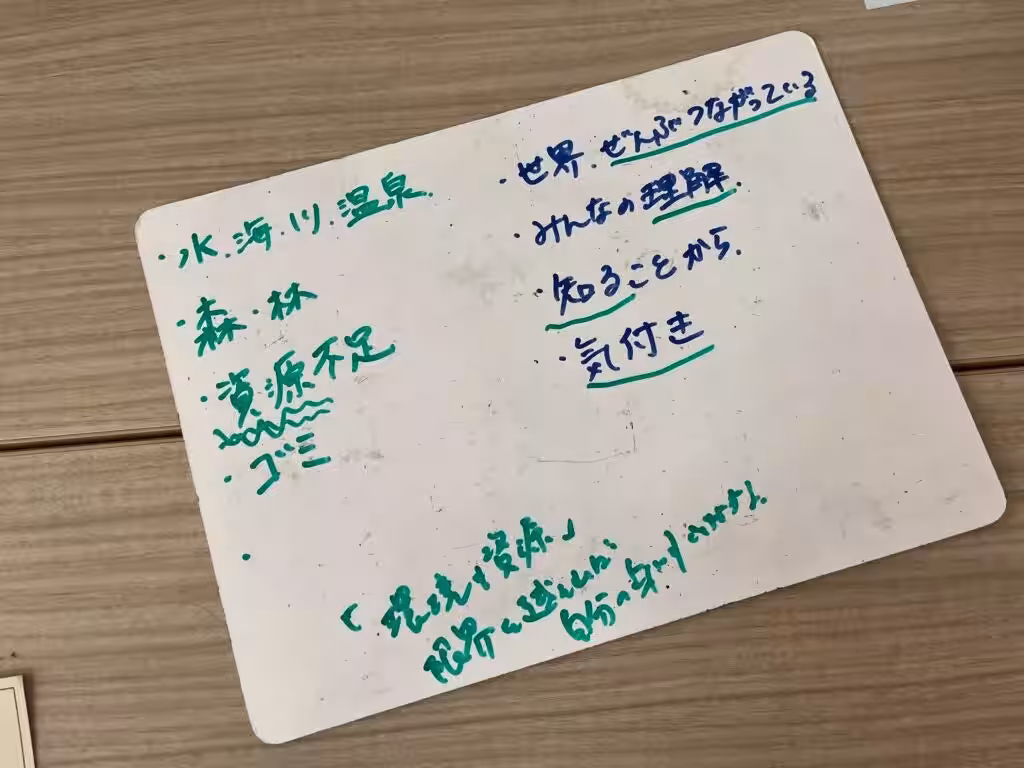 ・水・海・川・温泉.
・森・林
・資源不足
・ゴミ
・
・世界.ぜんぶつながっている
・みんなの理解.
・知ることから.
・気付き
「環境や資源」
限界
自分の